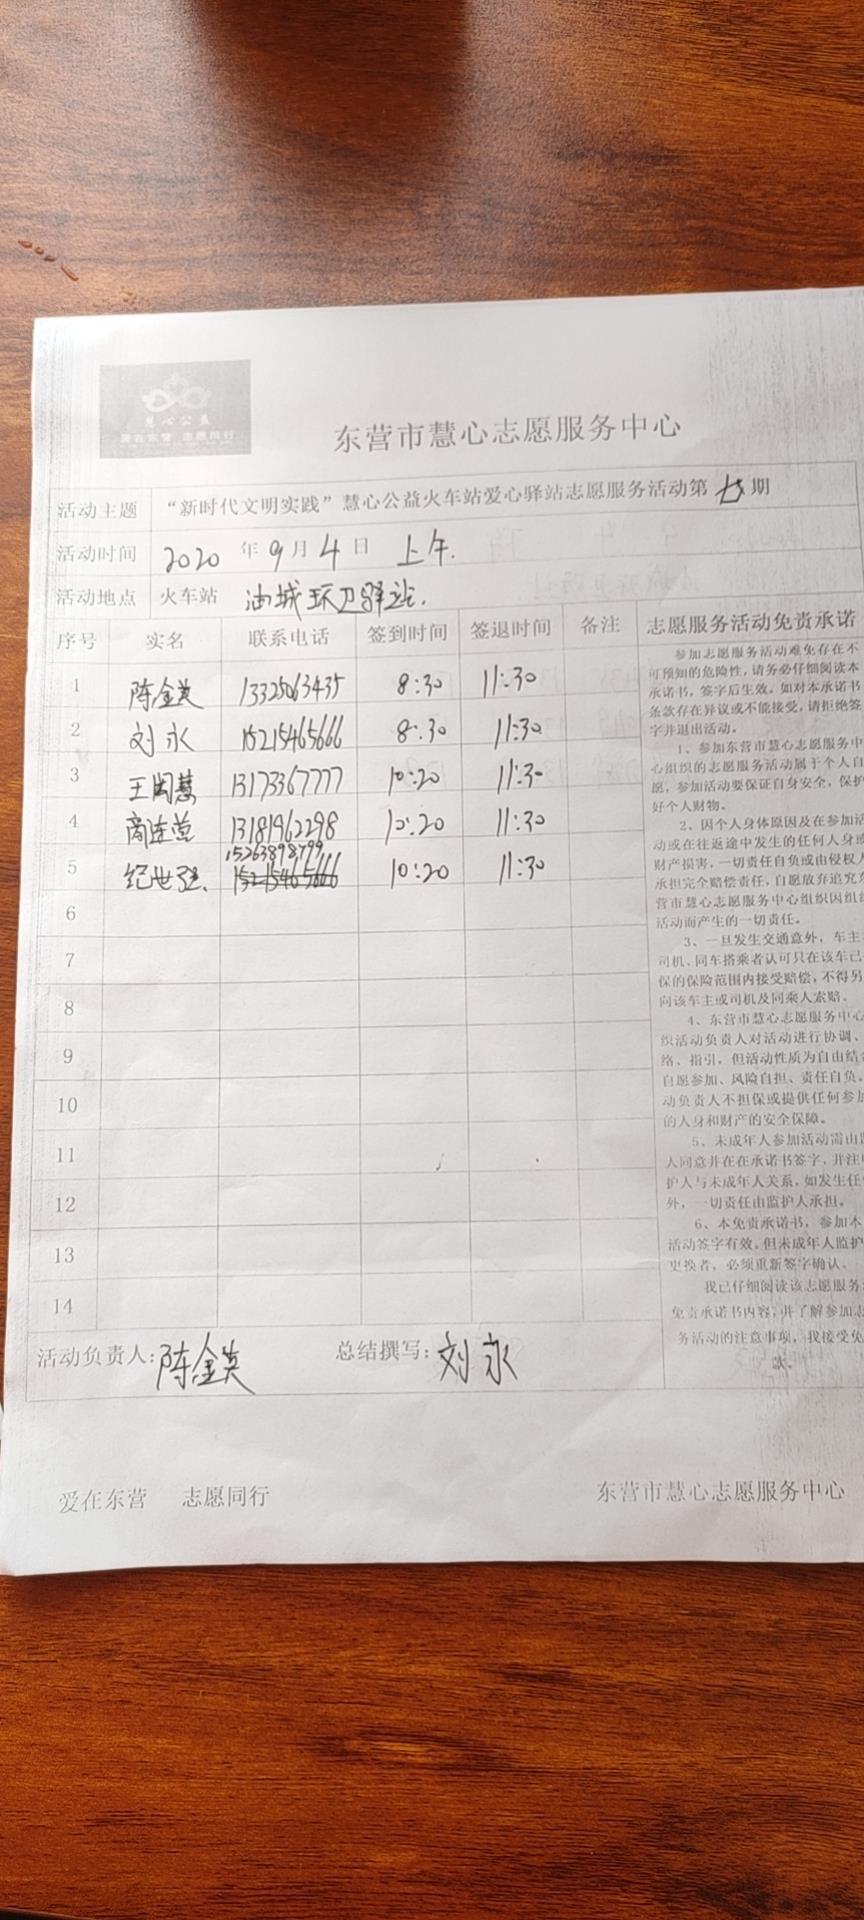 慧心公益
爱在东营 志愿同行
东营市慧心志愿服务中心
活动主题 “新时代文明实践”慧心公益火车站爱心驿站志愿服务活动第 七 期
活动时间 2020 年 9 月 4 日 上午.
活动地点 火车站 油城环卫驿站.
序号 实名 联系电话 签到时间 签退时间 备注 志愿服务活动免责承诺
1 陈金英 13325063435 8:30 11:30
2 刘永 15215465666 8:30 11:30
3 王闰慧 13173367777 10:20 11:30
4 商连营 13181962298 10:20 11:30
15263898799
5 纪世强. 15215465666 10:20 11:30
6
7
8
9
10
11
12
13
14
参加志愿服务活动难免存在不
可预知的危险性，请务必仔细阅读本
承诺书，签字后生效。如对本承诺书
条款存在异议或不能接受，请拒绝签
字并退出活动。
1、参加东营市慧心志愿服务中
心组织的志愿服务活动属于个人自
愿，参加活动要保证自身安全，保护
好个人财物。
2、因个人身体原因及在参加活
动或在往返途中发生的任何人身或
财产损害，一切责任自负或由侵权人
承担完全赔偿责任，自愿放弃追究东
营市慧心志愿服务中心组织因组织
活动而产生的一切责任。
3、一旦发生交通意外，车主
司机、同车搭乘者认可只在该车已
保的保险范围内接受赔偿，不得另
向该车主或司机及同乘人索赔。
4、东营市慧心志愿服务中心
织活动负责人对活动进行协调、
络、指引，但活动性质为自由结合
自愿参加、风险自担、责任自负。
动负责人不担保或提供任何参加
的人身和财产的安全保障。
5、未成年人参加活动需由监
人同意并在在承诺书签字，并注明
护人与未成年人关系，如发生任何
外，一切责任由监护人承担。
6、本免责承诺书，参加本
活动签字有效。但未成年人监护
更换者，必须重新签字确认。
我已仔细阅读该志愿服务
免责承诺书内容，并了解参加志
务活动的注意事项，我接受免
款。
活动负责人: 陈金英 总结撰写: 刘永
爱在东营 志愿同行 东营市慧心志愿服务中心